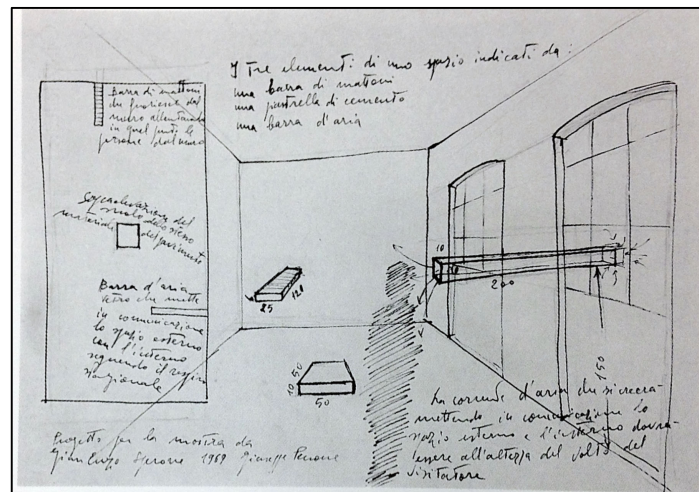 I Tre elementi di uno spazio indicati da:
una barra di mattoni
una piastrella di cemento
una barra d'aria
Barra di mattoni
che fuoriesce dal
muro allontanando
in quel punto le
persone dal muro
Sopraelevazione del
suolo dello stesso
materiale del pavimento
Barra d'aria
vetro che mette
in comunicazione
lo spazio esterno
con l'interno
seguendo il respiro
stagionale
25
120
10
50
50
10
10
200
150
La corrente d'aria che si creerà
mettendo in comunicazione lo
spazio esterno e l'interno dovrà
essere all'altezza del volto del
visitatore
Progetto per la mostra da
Gian Enzo Sperone 1969 Giuseppe Penone